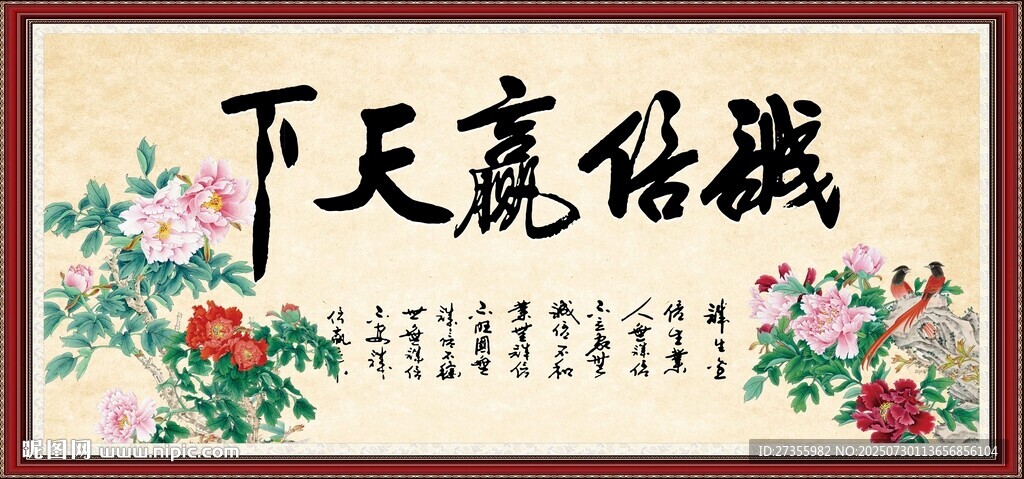 誠信贏天下
誠生金
信生業
人無誠信
不立家無
誠信不和
業無誠信
不旺國無
誠信不穩
世無誠信
不安誠
信贏天下
昵图网 www.nipic.com
ID:27355982 NO:20250730113656856104